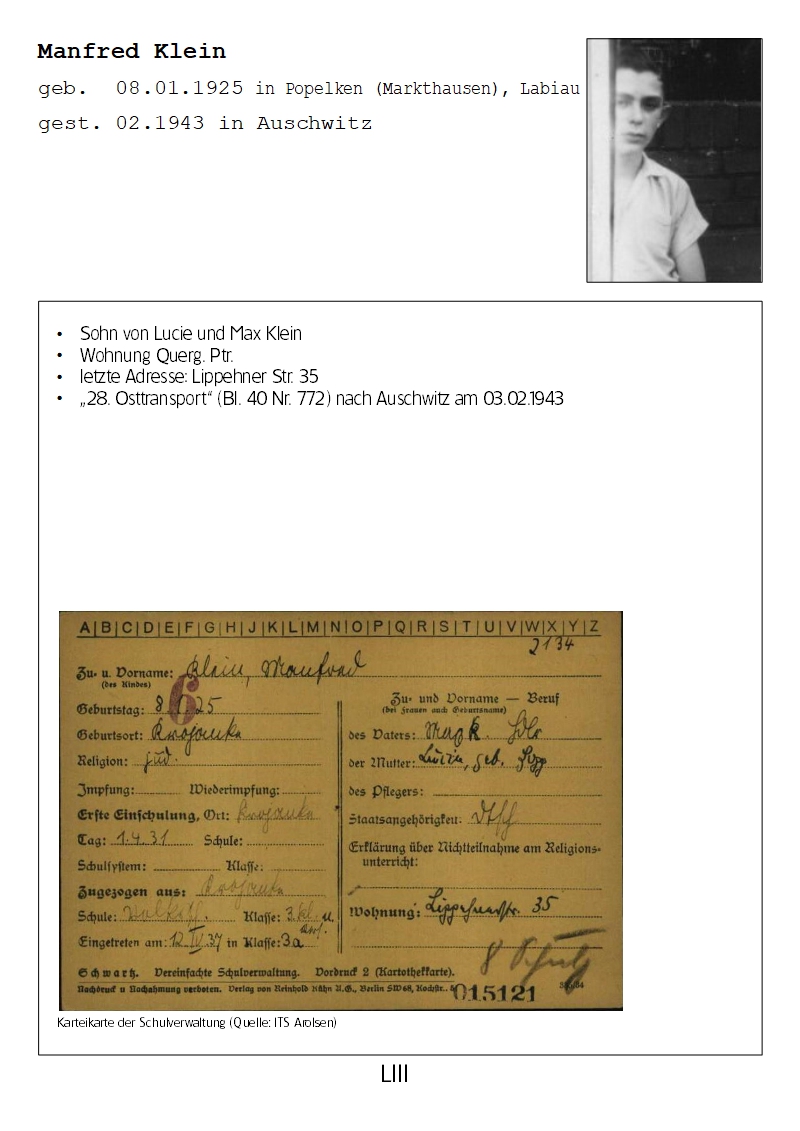 Manfred Klein
geb. 08.01.1925 in Popelken (Markthausen), Labiau
gest. 02.1943 in Auschwitz
• Sohn von Lucie und Max Klein
• Wohnung Querg. Ptr.
• letzte Adresse: Lippehner Str. 35
• „28. Osttransport“ (Bl. 40 Nr. 772) nach Auschwitz am 03.02.1943
A|B|C|D|E|F|G|H|J|K|L|M|N|O|P|Q|R|S|T|U|V|W|X|Y|Z
2134
Zu- u. Vorname: Klein, Manfred
(des Kindes)
6
Geburtstag: 8.1.25
Geburtsort: Krojanke
Religion: jüd.
Impfung: Wiederimpfung:
Erste Einschulung, Ort: Krojanke
Tag: 1.4.31 Schule:
Schulsystem: Klasse:
Zugezogen aus: Krojanke
Schule: Volkssch. Klasse: 3.
Eingetreten am: 12.IV.37 in Klasse: 3a
Zu- und Vorname — Beruf
(bei Frauen auch Geburtsname)
des Vaters:
der Mutter: Luzie, geb.
des Pflegers:
Staatsangehörigkeit: Dtsch
Erklärung über Nichtteilnahme am Religions-
unterricht:
Wohnung: Lippehnerstr. 35
8
Schwartz. Vereinfachte Schulverwaltung. Vordruck 2 (Kartothekkarte).
Nachdruck u Nachahmung verboten. Verlag von Reinhold Kühn A.G., Berlin SW68, Kochstr.
015121
Karteikarte der Schulverwaltung (Quelle: ITS Arolsen)
LIII